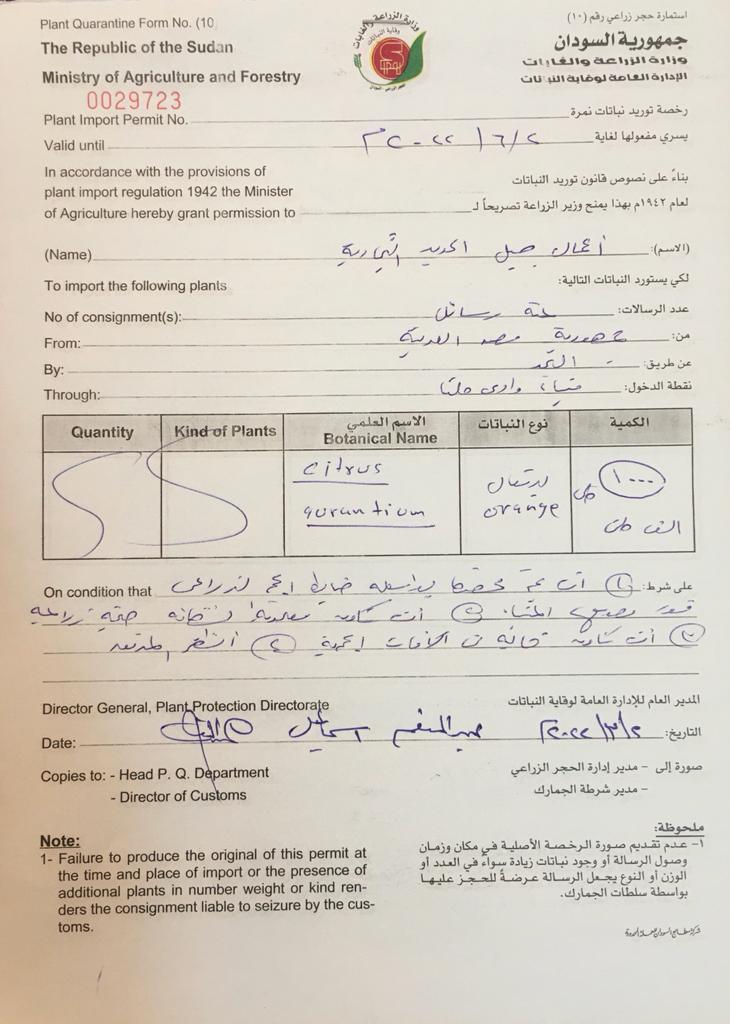 Plant Quarantine Form No. (10
استمارة حجر زراعي رقم (١٠)
The Republic of the Sudan
جمهورية السودان
Ministry of Agriculture and Forestry
وزارة الزراعة والغابات
الإدارة العامة لوقاية النباتات
وزارة الزراعة والغابات
وقاية النباتات
0029723
Plant Import Permit No.
رخصة توريد نباتات نمرة
Valid until ٢/٦/٢٠٢٢م يسري مفعولها لغاية
In accordance with the provisions of
plant import regulation 1942 the Minister
of Agriculture hereby grant permission to
بناءً على نصوص قانون توريد النباتات
لعام ١٩٤٢م بهذا يمنح وزير الزراعة تصريحاً لـ
(Name) (الاسم): أعمال جبل الحديد التجارية
To import the following plants
لكي يستورد النباتات التالية:
No of consignment(s): عدد الرسالات: ستة رسائل
From: من: جمهورية مصر العربية
By: عن طريق: البحر
Through: نقطة الدخول: ميناء وادى حلفا
Quantity
Kind of Plants
الاسم العلمي
Botanical Name
نوع النباتات
الكمية
citrus
aurantium
برتقال
orange
١٠٠٠ طن
الف طن
On condition that على شرط: (١) أن
(٢) أن تكون
(٣) أن تكون خالية من الآفات (٤)
Director General, Plant Protection Directorate
المدير العام للإدارة العامة لوقاية النباتات
Date: التاريخ: ٢/٣/٢٠٢٢م عبدالمنعم اسماعيل
Copies to: - Head P. Q. Department
- Director of Customs
صورة إلى – مدير إدارة الحجر الزراعي
– مدير شرطة الجمارك
Note:
1- Failure to produce the original of this permit at
the time and place of import or the presence of
additional plants in number weight or kind ren-
ders the consignment liable to seizure by the cus-
toms.
ملحوظة:
١– عدم تقديم صورة الرخصة الأصلية في مكان وزمان
وصول الرسالة أو وجود نباتات زيادة سواءً في العدد أو
الوزن أو النوع يجعل الرسالة عرضةً للحجز عليها
بواسطة سلطات الجمارك.
شركة مطابع السودان للعملة المحدودة